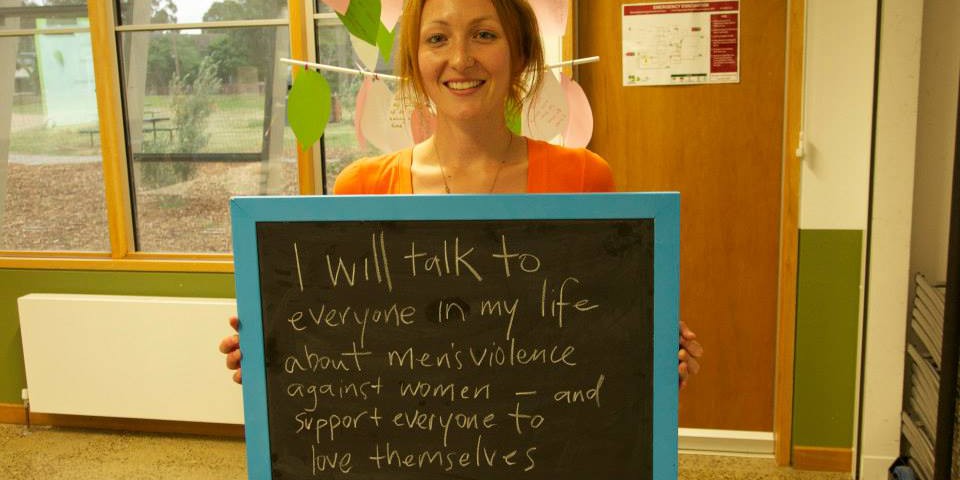 EMERGENCY EVACUATION
I will talk to
everyone in my life
about men's violence
against women – and
support everyone to
love themselves